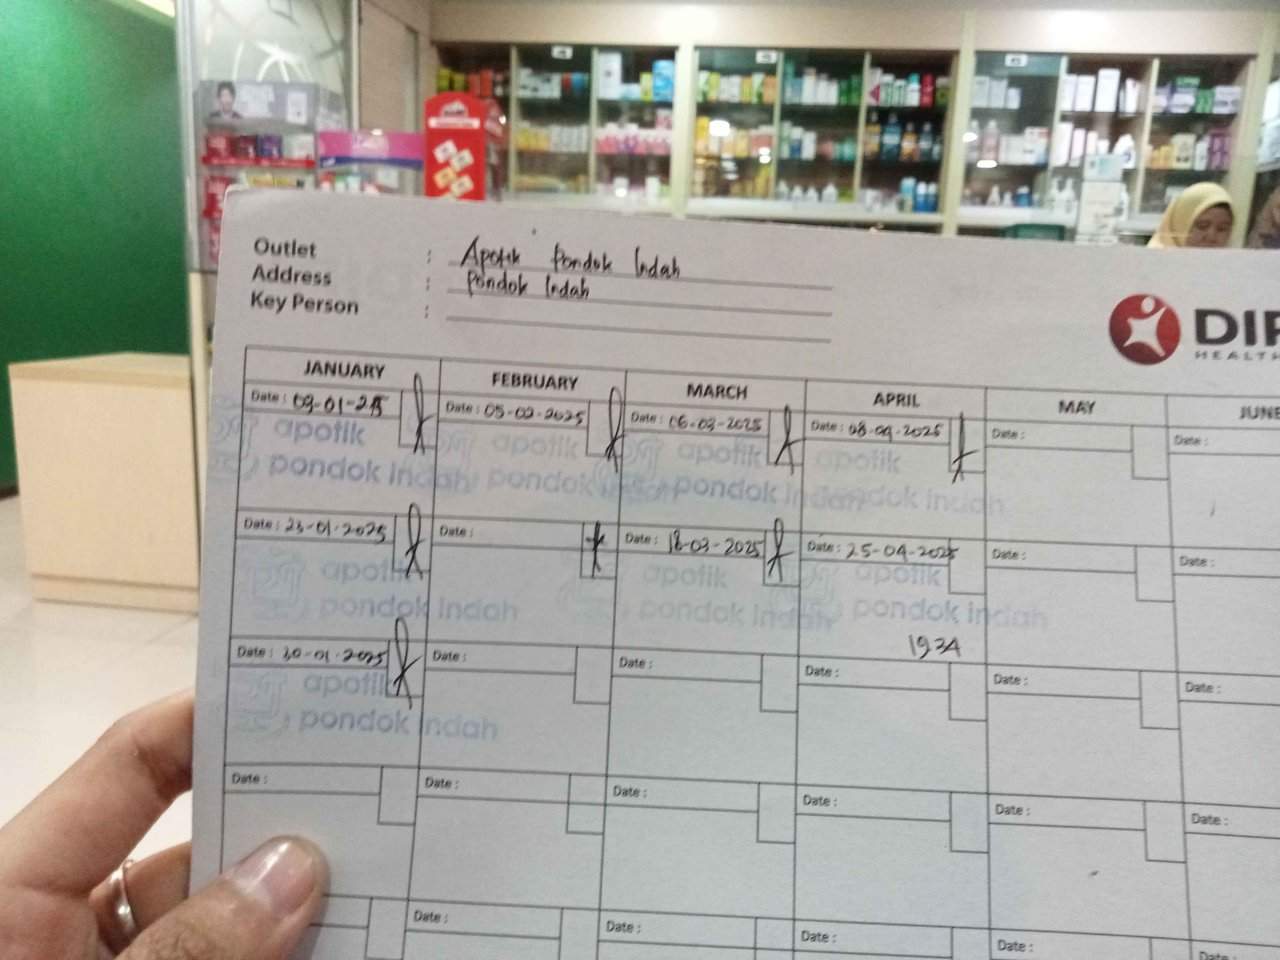 Outlet : Apotik Pondok Indah
Address : Pondok Indah
Key Person :
DIP
HEALTH
JANUARY FEBRUARY MARCH APRIL MAY JUNE
Date : 05-02-2025 Date : 06-03-2025 Date : 08-04-2025 Date : Date :
apotik apotik apotik apotik
pondok indah pondok indah pondok indah pondok indah
Date : 23-01-2025 Date : Date : 18-03-2025 Date : 25-04-2025 Date : Date :
apotik apotik apotik
pondok indah pondok indah pondok indah
1934
Date : 30-01-2025 Date : Date : Date : Date : Date :
apotik
pondok indah
Date : Date : Date : Date : Date : Date :
Date : Date : Date : Date : Date :